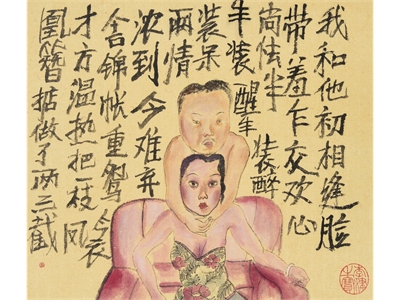 我和他初相逢脸
带羞乍交欢心
尚怯半装醉
半装醒半
装呆
两情
浓到今难弃
舍锦帐重鸳衾
才方温热把一枝凤
凰簪掂做了两三截